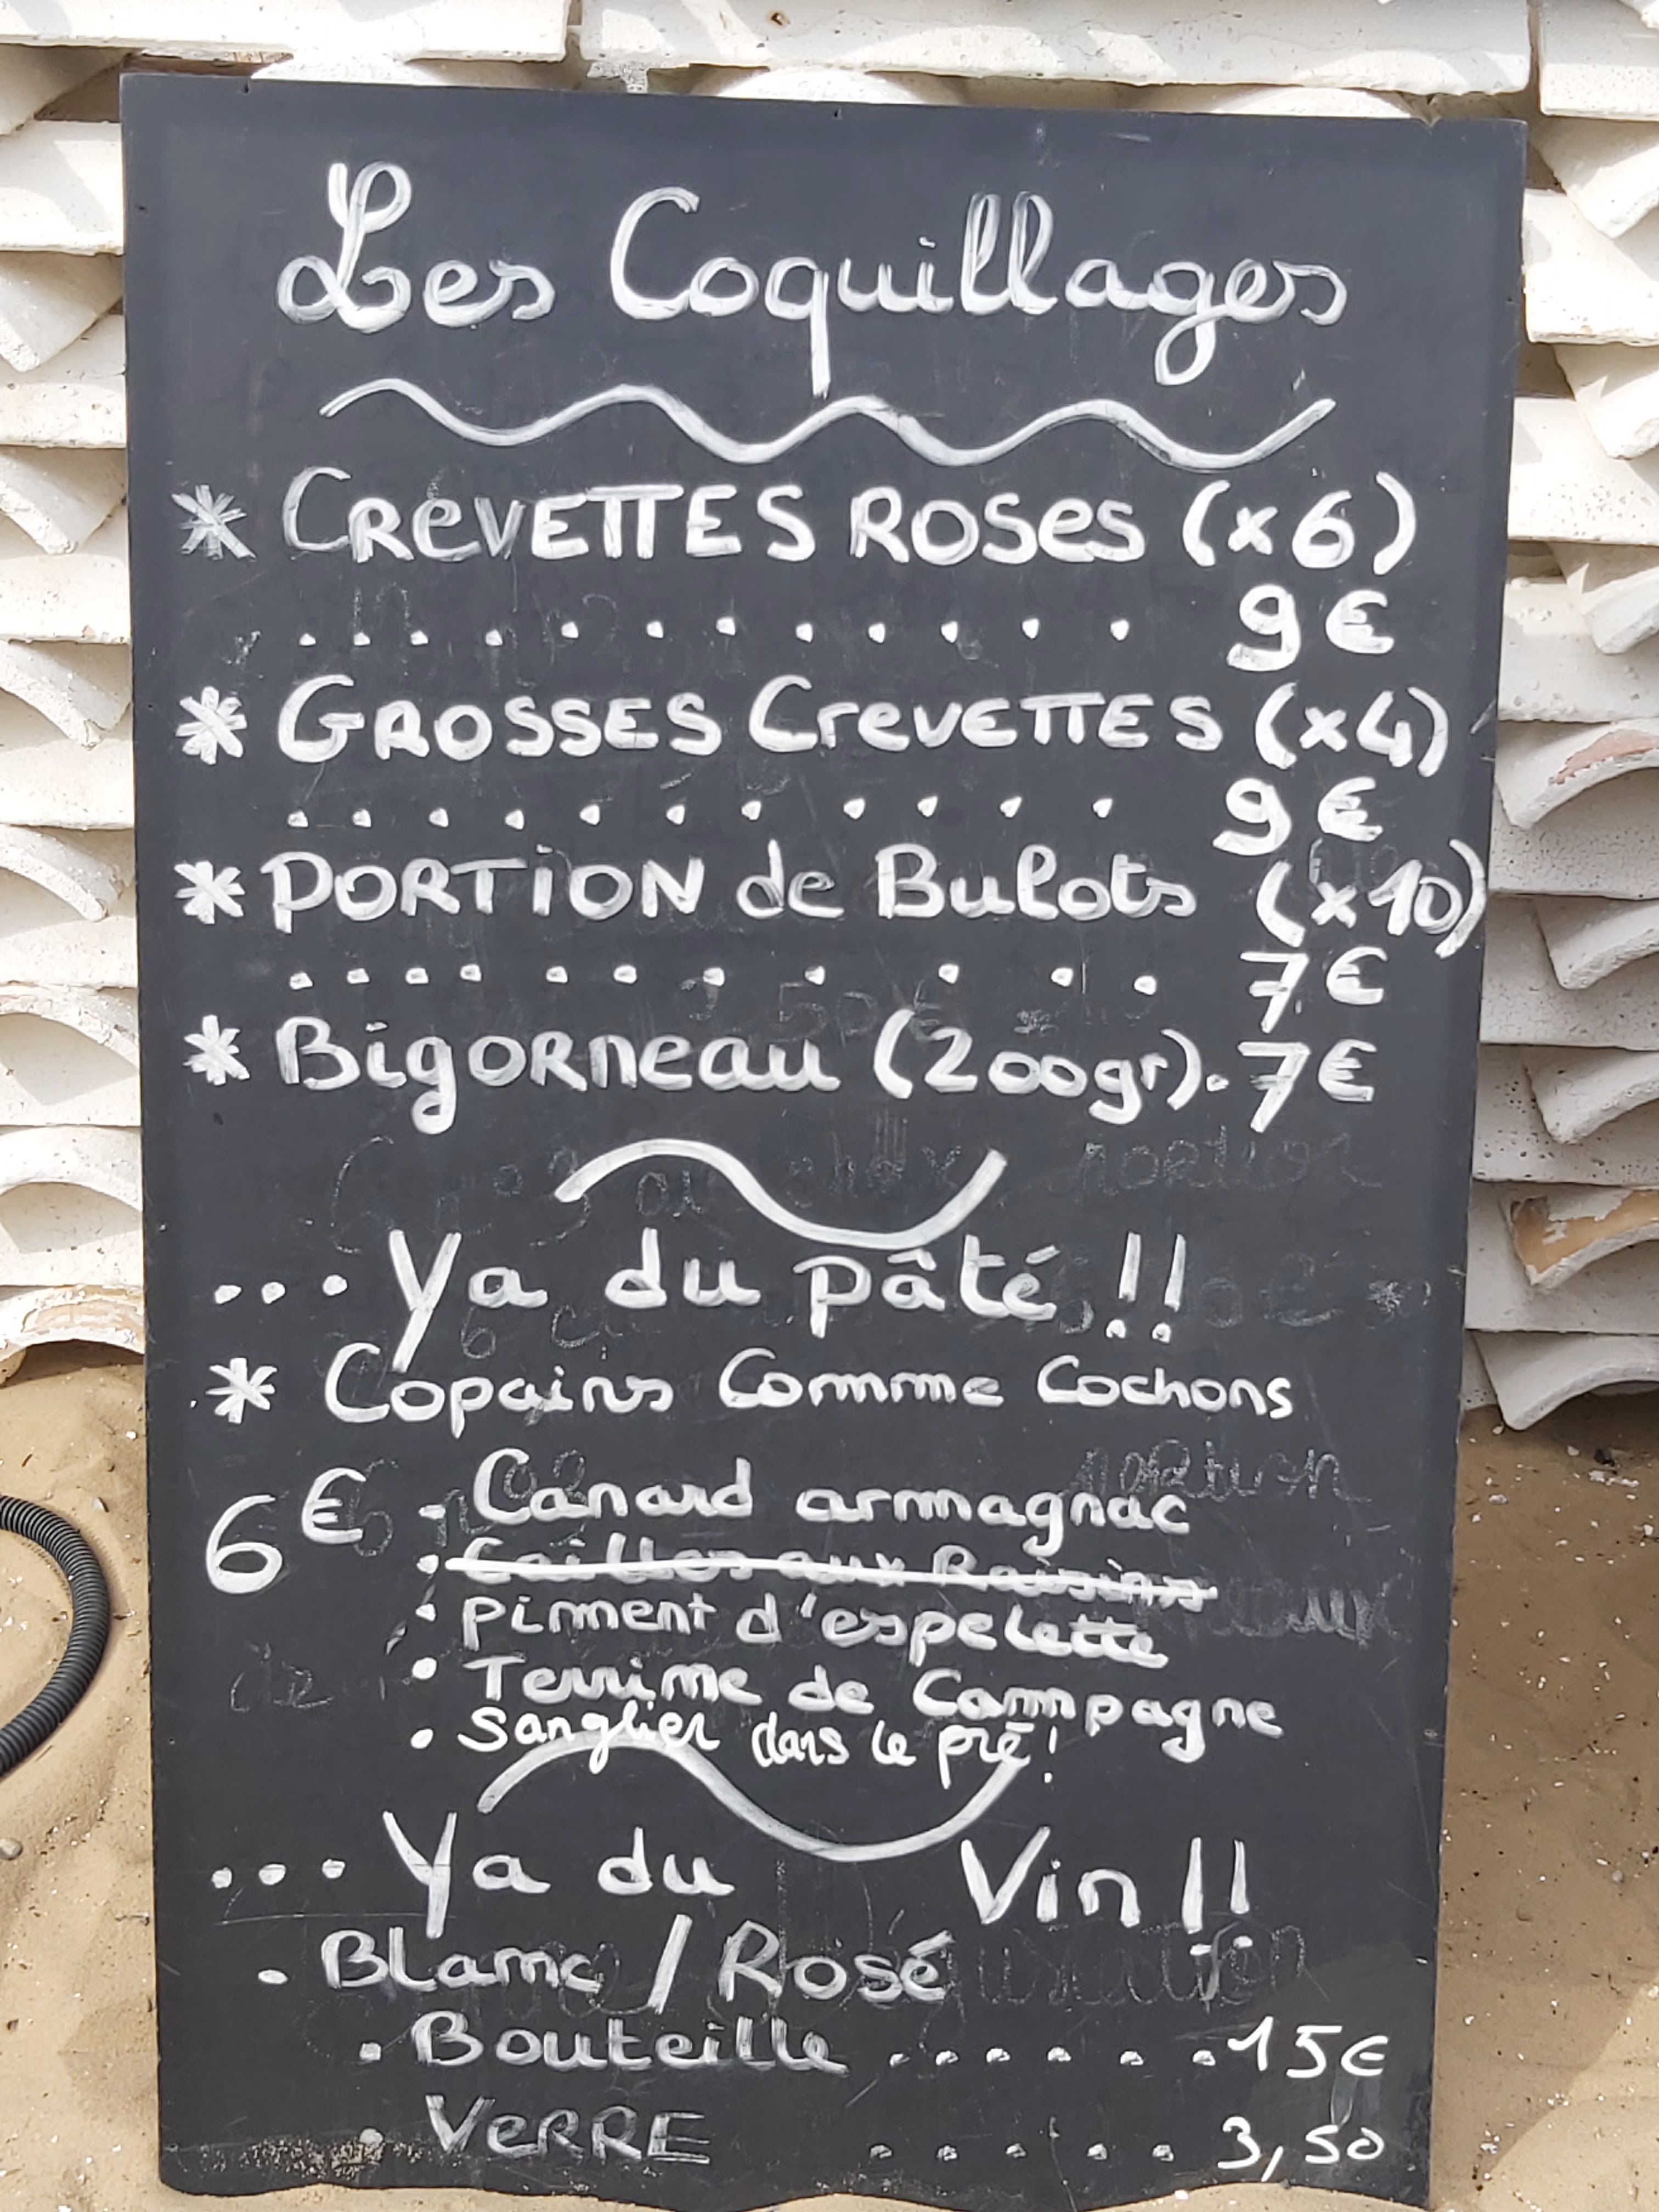 Les Coquillages
* CREVETTES ROSES (x6)
............ 9€
* GROSSES CREVETTES (x4)
............ 9€
* PORTION de Bulots (x10)
............ 7€
* Bigorneau (200gr). 7€
... Ya du pâté !!
* Copains Comme Cochons
6€ - Canard armagnac
. Cailles aux Raisins
. piment d'espelette
. Terrine de Campagne
. Sanglier dans le pré !
... Ya du Vin !!
. Blanc / Rosé
. Bouteille ...... 15€
. VERRE ..... 3,50